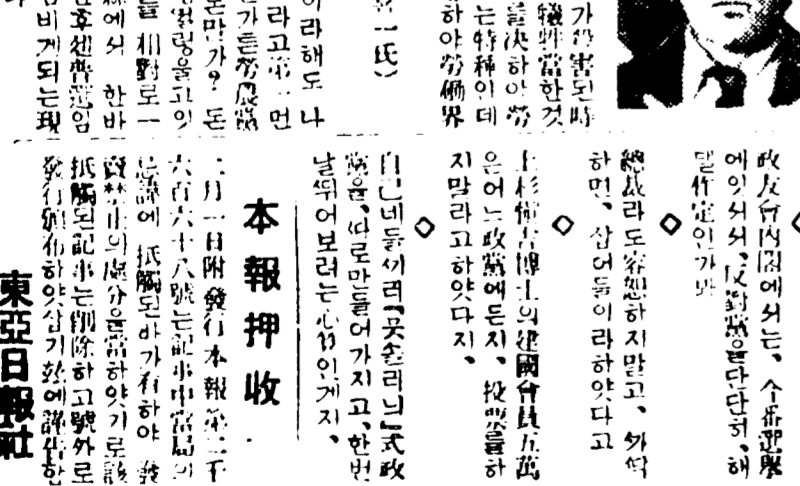 가 殺害된 時
犧牲當한 것
을 決하야 勞
는 特種인데
하야 勞働界
一氏)
이라해도 나
라고 第一 먼
가튼 勞農黨
돈만가? 돈
를 相對로 一
에서 한바
비게되는 現
政友會內閣에서는、今番選擧
에잇서서、反對黨을단단히、해
달作定인가봐
◇
總裁라도容恕하지말고、外
하면、잡어들이라하얏다고
◇
上杉愼吉博士의建國會員五萬
은어느政黨에든지、投票를하
지말라고하얏다지、
◇
自己네들끼리『못숀리늬』式政
黨을、따로만들어가지고、한번
날뛰어보려는心算인게지、
本報押收
二月一日附發行本報第二千
六百六十八號는記事中當局의
忌諱에 抵觸된바가有하야 發
賣禁止의處分을當하얏기로該
抵觸된記事는削除하고號外로
發行頒布하얏삽기玆에謹告한
東亞日報社